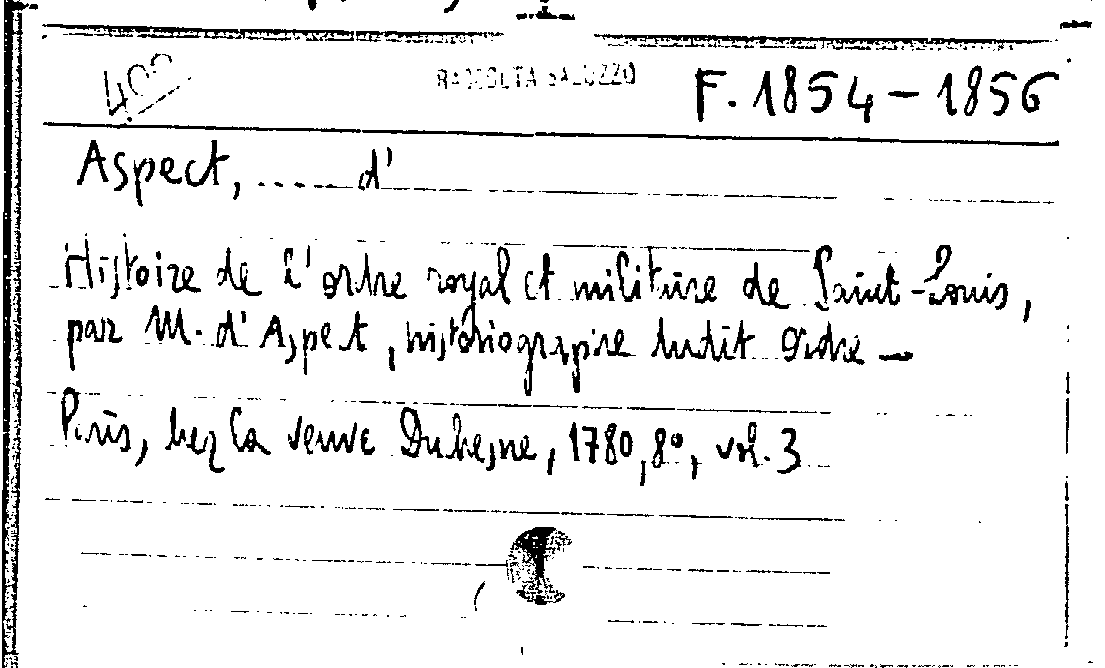 400 RACCOLTA SALUZZO F. 1854 - 1856
Aspect, ..... d'
Histoire de l'ordre royal et militaire de Saint-Louis,
par M. d'Aspect, historiographe dudit Ordre -
Paris, chez la veuve Duchesne, 1780, 8°, vol. 3